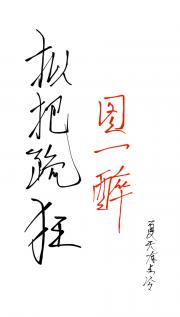 拟把疏狂
图一醉